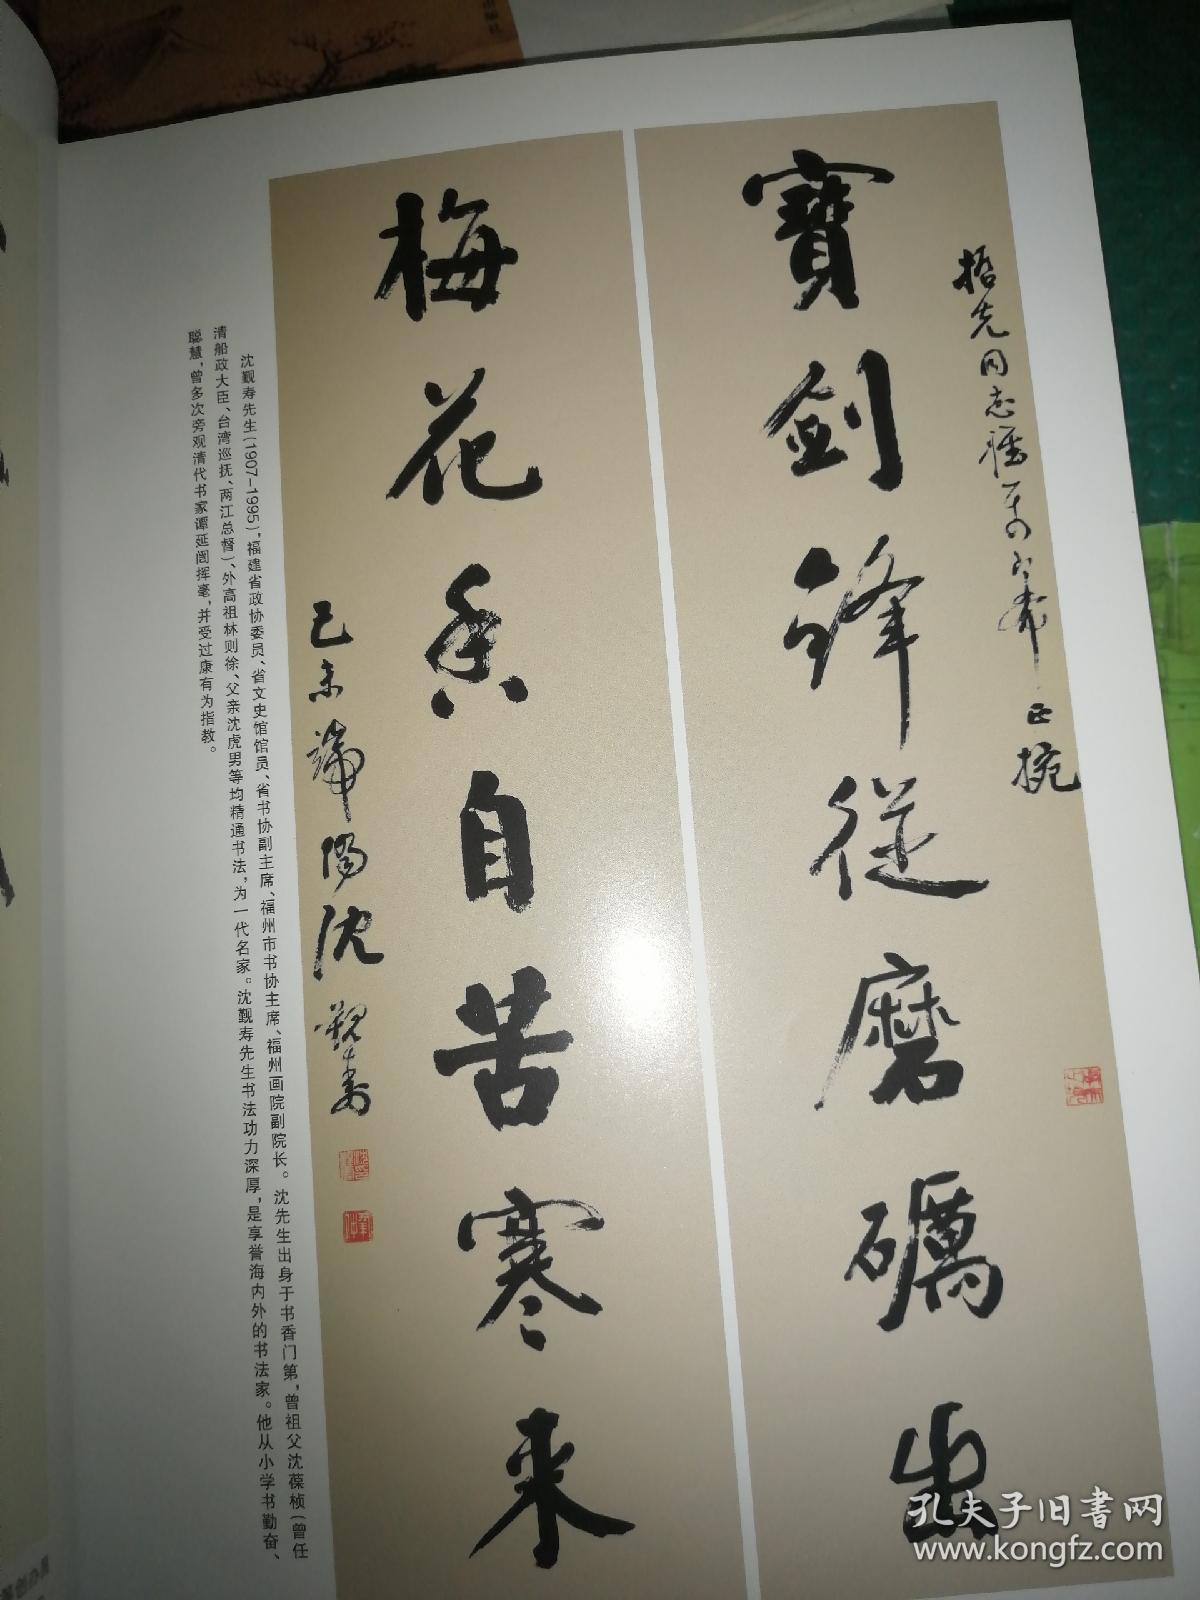 寶劍鋒從磨礪出
己未端陽沈覲壽
梅花香自苦寒來
沈觐寿先生(1907—1995),福建省政协委员、省文史馆馆员、省书协副主席、福州市书协主席、福州画院副院长。沈先生出身于书香门第,曾祖父沈葆桢(曾任
清船政大臣、台湾巡抚、两江总督)、外高祖林则徐、父亲沈虎男等均精通书法,为一代名家。沈觐寿先生书法功力深厚,是享誉海内外的书法家。他从小学书勤奋、
聪慧,曾多次旁观清代书家谭延闿挥毫,并受过康有为指教。
孔夫子旧书网
www.kongfz.com